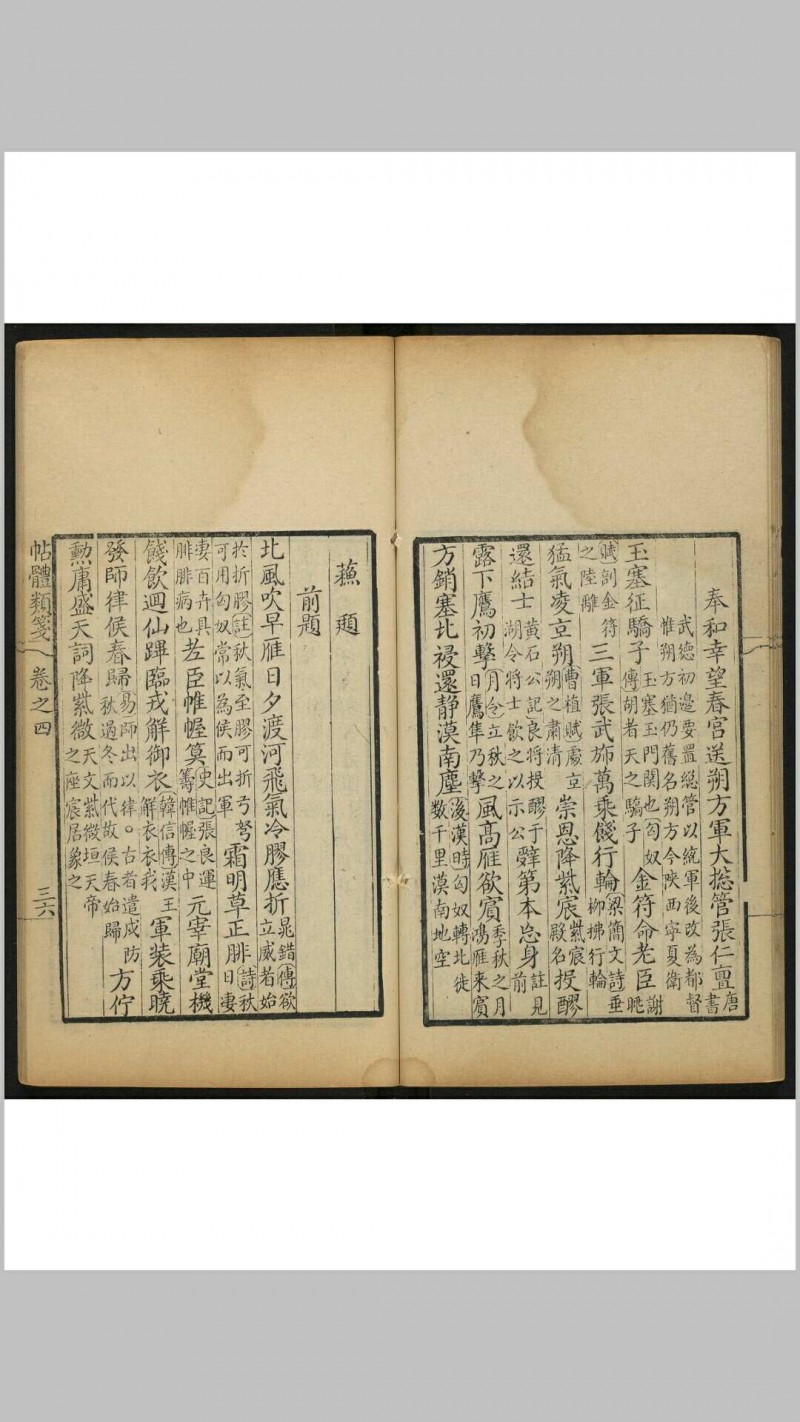 奉和幸望春宮送朔方軍大揔管張仁亶唐書
武德初邊要置緫管以統軍後改為都督惟朔方猶仍舊名朔方今陝西寧夏衛
玉塞征驕子玉塞玉門関也匈奴傳胡者天之驕子金符命老臣謝眺
賦剖金符之陸離三軍張武斾萬乘餞行輪梁簡文詩垂柳拂行輪
猛氣凌亰朔曹植賦處亰朔之肅清崇恩降紫宸紫宸殿名投醪
還結士黃石公記良將投醪于湖令將士飲之以示公辭第本忘身註見前
露下鷹初擊月令立秋之日鷹隼乃擊風高雁欲賓季秋之月鴻雁来賓
方銷塞北祲還靜漠南塵後漢時匈奴轉北徙數千里漠南地空
蘓頲
前題
北風吹早雁日夕渡河飛氣冷膠應折晁錯傳欲立威者始
於折膠註秋氣至膠可折弓弩可用匈奴常以為侯而出軍霜明草正腓詩秋日凄
凄百卉具腓腓病也老臣帷幄筭史記張良運籌帷幄之中元宰廟堂機
餞飲迴仙蹕臨戎解御衣韓信傳漢王解衣衣我軍裝乘曉
發師律候春歸易師出以律。古者遣戍防秋過冬而代故侯春始歸方佇
勲庸盛天詞降紫微天文紫微垣天帝之座宸居象之
帖體類箋 卷之四 三六